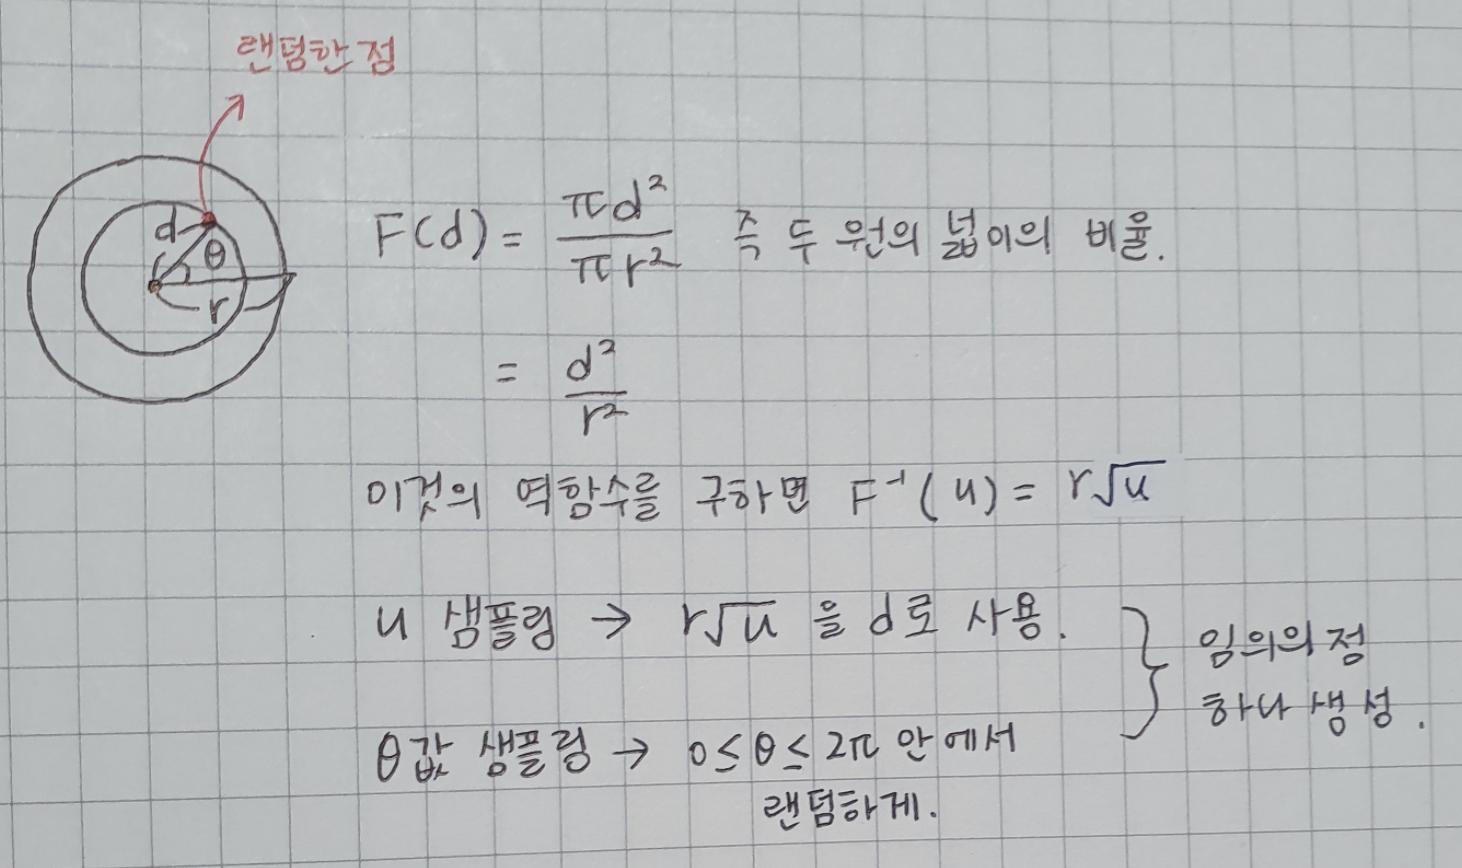 랜덤한 점
d θ r
F(d) = πd²/πr² 즉 두 원의 넓이의 비율.
= d²/r²
이것의 역함수를 구하면 F⁻¹(u) = r√u
u 샘플링 → r√u 을 d로 사용.
θ값 샘플링 → 0≤θ≤2π 안에서
랜덤하게.
임의의 점
하나 생성.